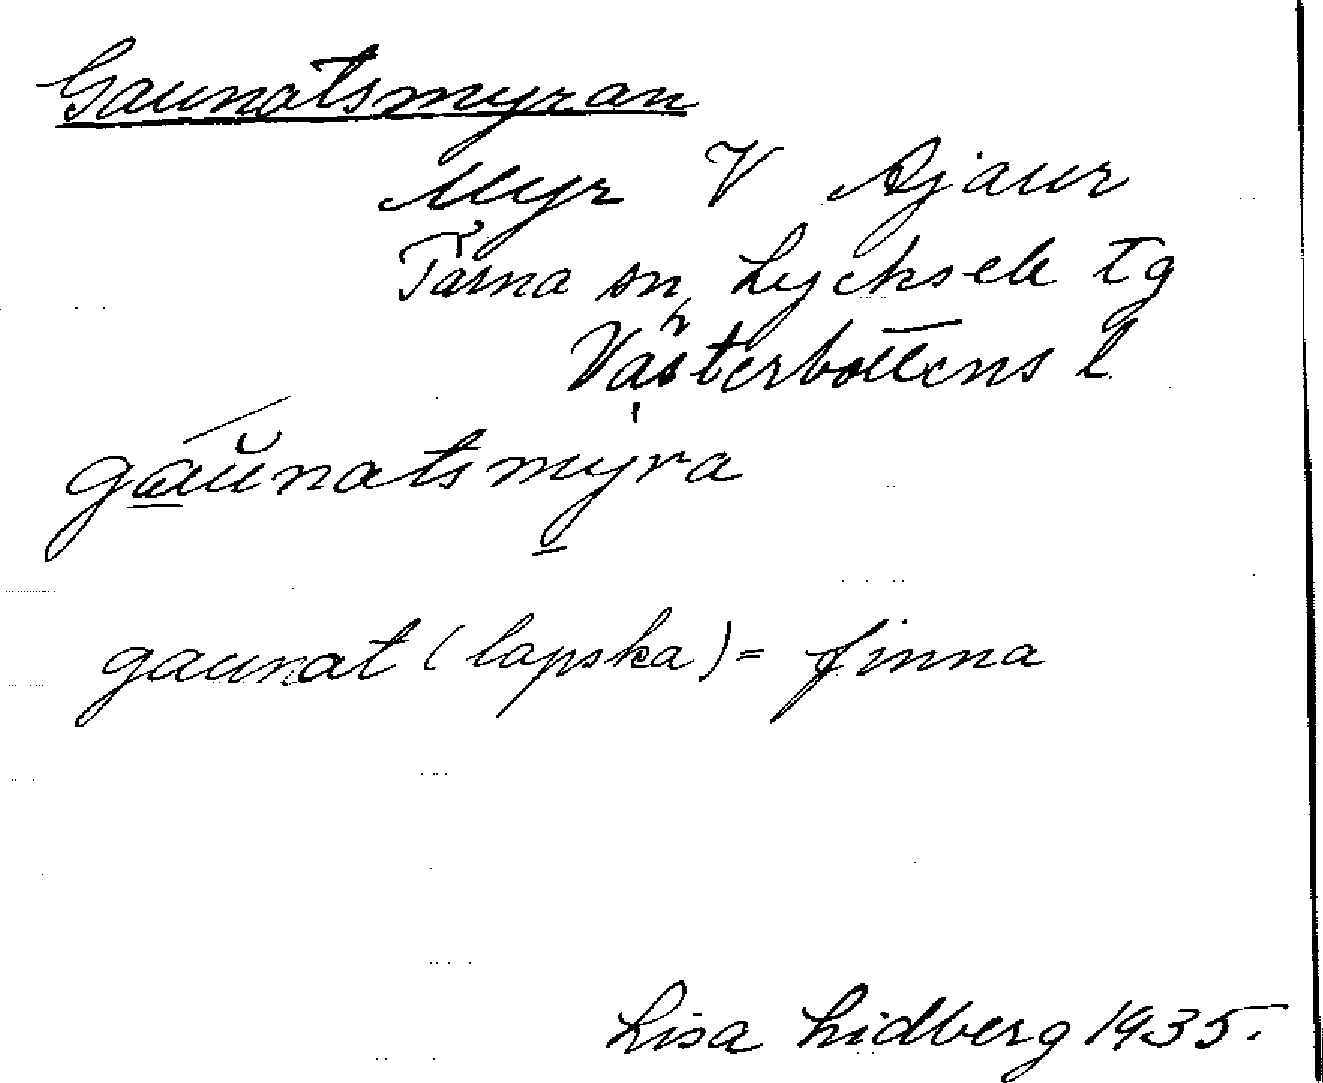 Gaunatsmyran
Myr V Ajaur
Tärna sn, Lycksele tg
Västerbottens l
gaŭnatsmyra
gaunat (lapska) = finna
Lisa Lidberg 1935.